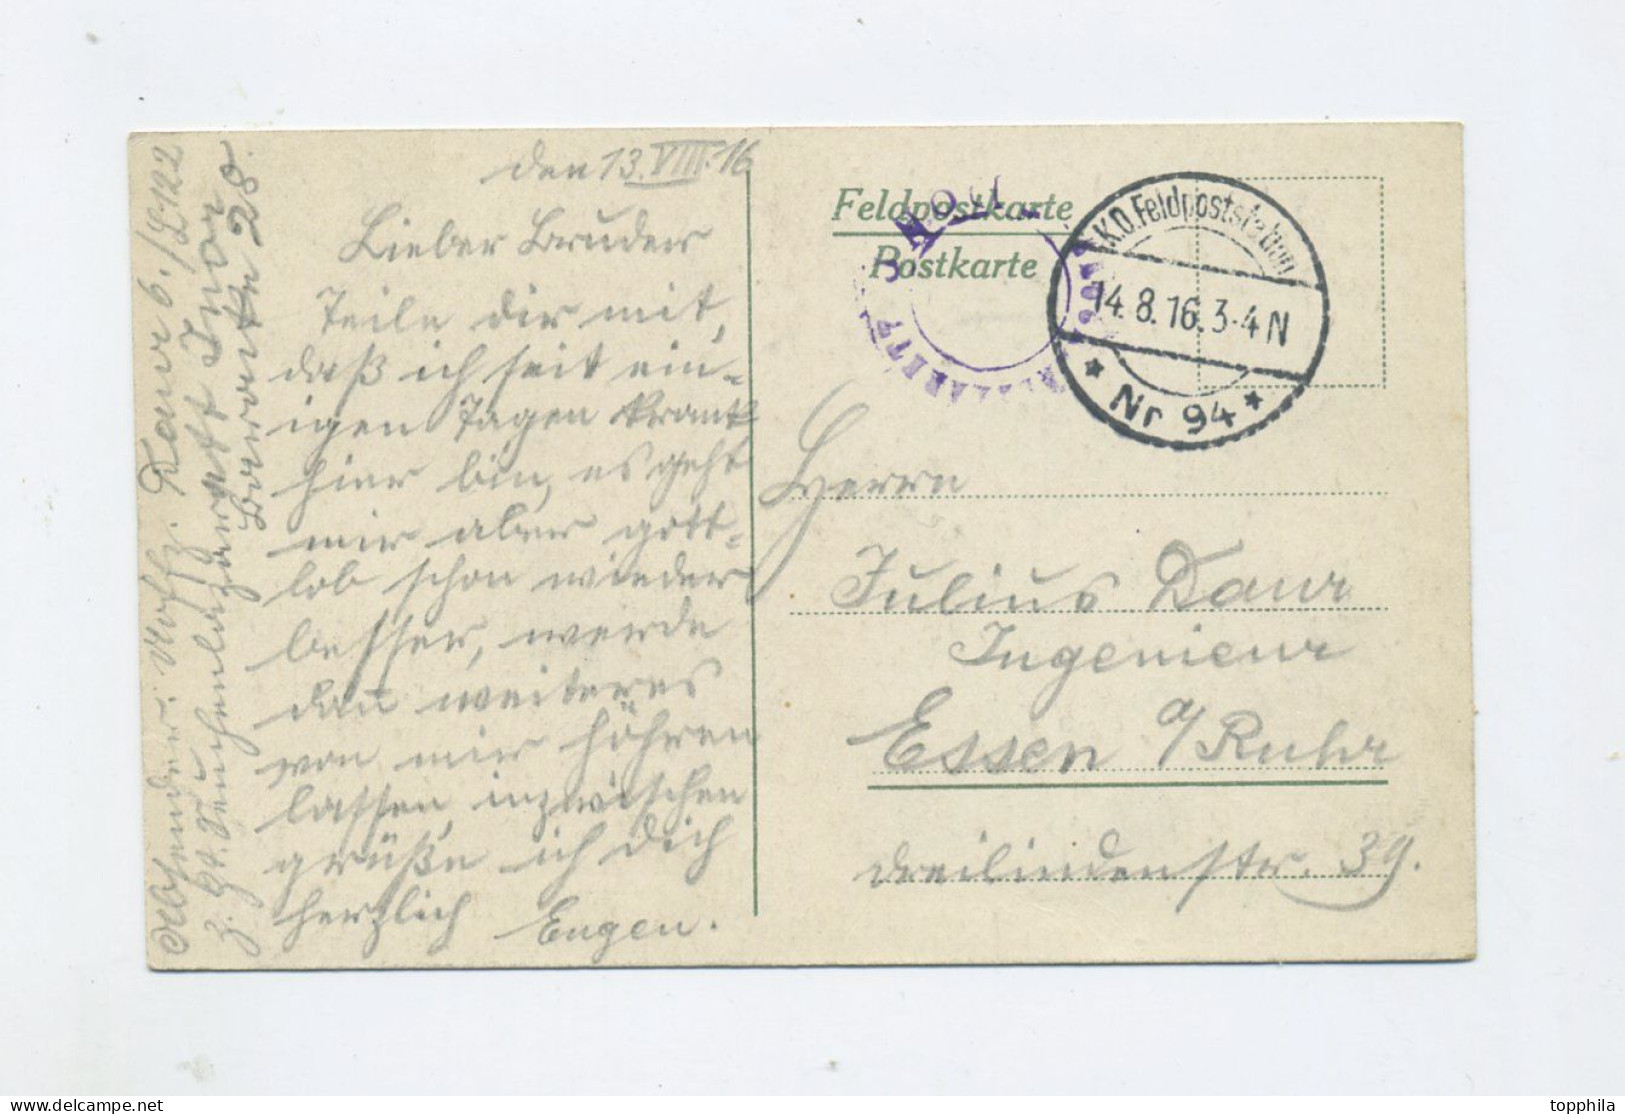 den 13.VIII.16
Lieber Bruder
Teile dir mit,
daß ich seit ein-
igen Tagen krank
hier bin, es geht
mir aber gott-
lob schon wieder
besser, werde
dan̄ weiteres
von mir höhren
lassen, inzwischen
grüße ich dich
herzlich Eugen.
Absender: Uoffz. Daur 6./L122
z. Zt. Seuchenlazarett
Baracke 28.
Feldpostkarte
Postkarte
K.D. Feldpoststation
14.8.16. 3-4 N
* Nr 94 *
Herrn
Julius Daur
Ingenieur
Essen a/Ruhr
Dreilindenstr. 39.
topphila